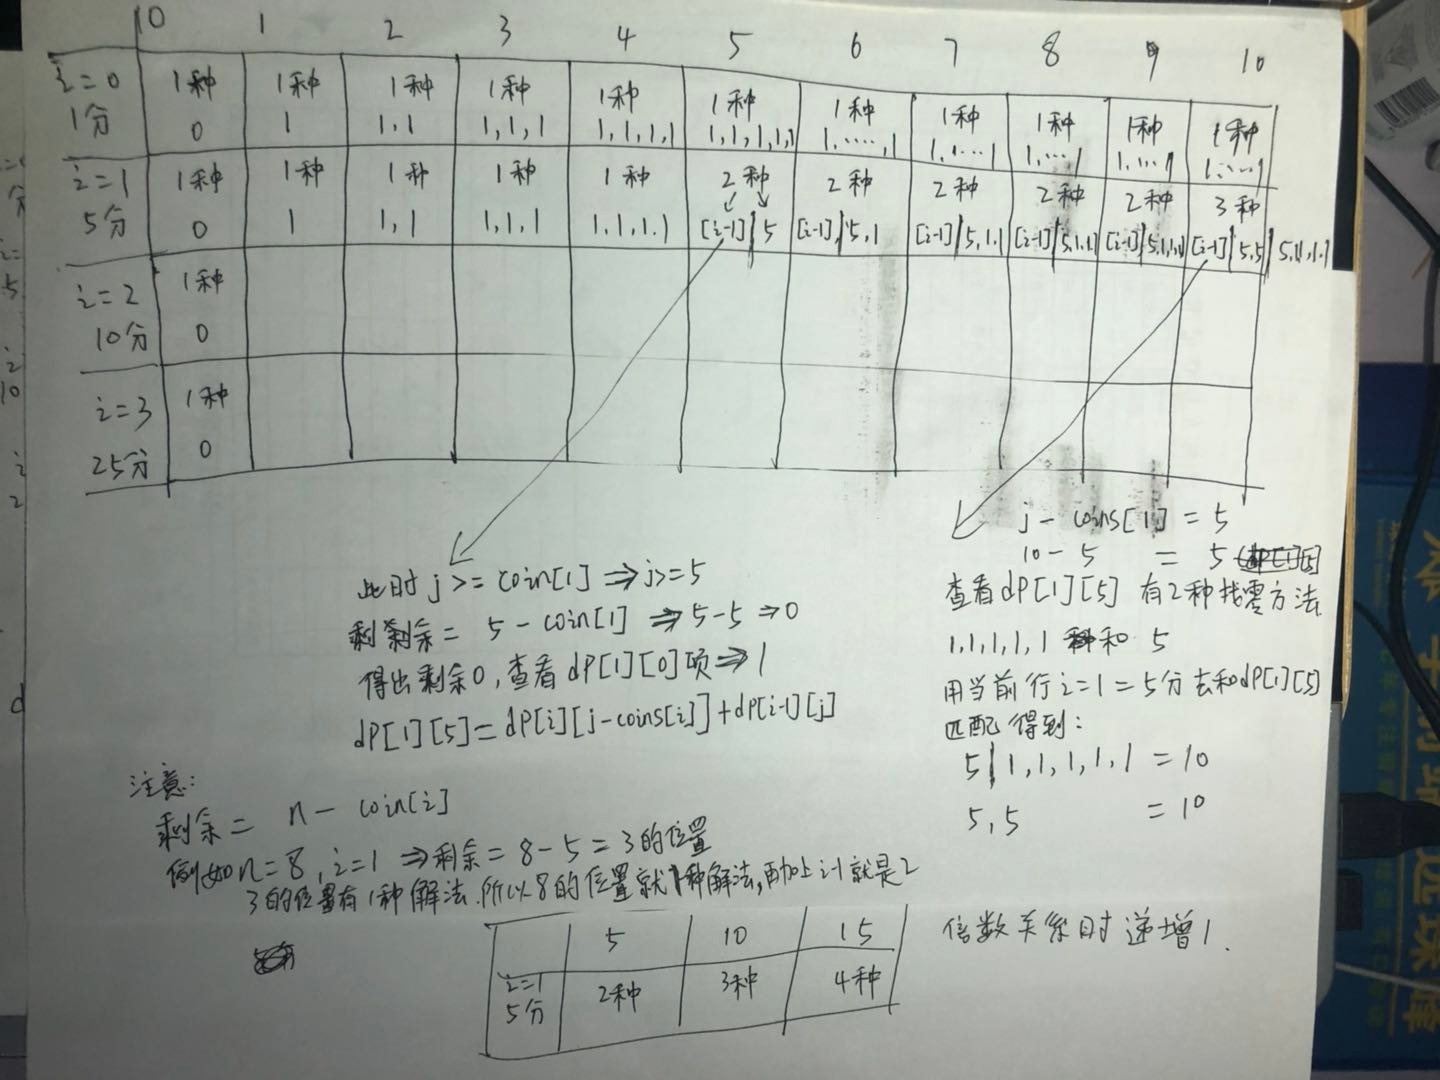 0 1 2 3 4 5 6 7 8 9 10
i=0 1种 1种 1种 1种 1种 1种 1种 1种 1种 1种 1种
1分 0 1 1,1 1,1,1 1,1,1,1 1,1,1,1,1 1,....,1 1,....1 1,...1 1,...1 1,...,1
i=1 1种 1种 1种 1种 1种 2种 2种 2种 2种 2种 3种
5分 0 1 1,1 1,1,1 1,1,1,1 [i-1]|5 [i-1]|5,1 [i-1]|5,1,1 [i-1]|5,1,1,1 [i-1]|5,1,1,1,1 [i-1]|5,5|5,1,1,1,1
i=2 1种
10分 0
i=3 1种
25分 0
此时 j>=coin[1]⇒j>=5
剩余= 5-coin[1] ⇒5-5⇒0
得出剩余0,查看dp[1][0]项⇒1
dp[1][5]=dp[i][j-coins[i]]+dp[i-1][j]
j-coins[1]=5
10-5 = 5
查看dp[1][5] 有2种找零方法
1,1,1,1,1 和 5
用当前行i=1=5分去和dp[1][5]
匹配得到:
5|1,1,1,1,1 =10
5,5 =10
注意:
剩余= n-coin[i]
例如n=8,i=1 ⇒剩余=8-5=3的位置
3的位置有1种解法.所以8的位置就1种解法,再加上i-1就是2
5 10 15
i=1
5分 2种 3种 4种
倍数关系时递增1.